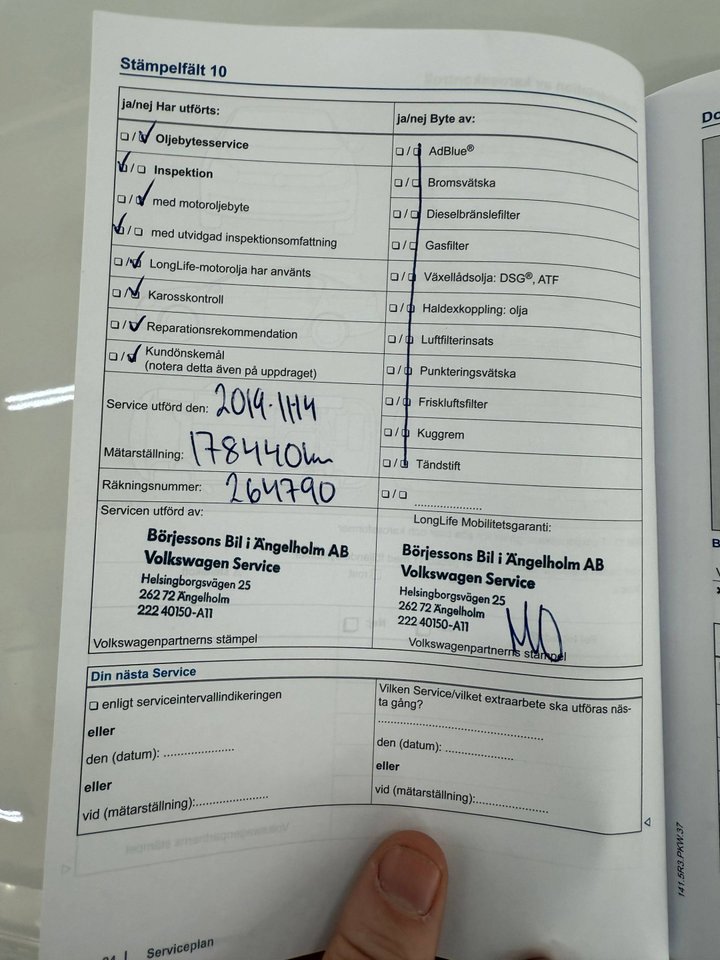 Stämpelfält 10
ja/nej Har utförts:
☐/☑ Oljebytesservice
☑/☐ Inspektion
☐/☑ med motoroljebyte
☑/☐ med utvidgad inspektionsomfattning
☐/☑ LongLife-motorolja har använts
☐/☑ Karosskontroll
☐/☑ Reparationsrekommendation
☐/☑ Kundönskemål
(notera detta även på uppdraget)
Service utförd den:
Mätarställning: 178440km
Räkningsnummer: 264790
Servicen utförd av:
Börjessons Bil i Ängelholm AB
Volkswagen Service
Helsingborgsvägen 25
262 72 Ängelholm
222 40150-A11
Volkswagenpartnerns stämpel
ja/nej Byte av:
☐/☐ AdBlue®
☐/☐ Bromsvätska
☐/☐ Dieselbränslefilter
☐/☐ Gasfilter
☐/☐ Växellådsolja: DSG®, ATF
☐/☐ Haldexkoppling: olja
☐/☐ Luftfilterinsats
☐/☐ Punkteringsvätska
☐/☐ Friskluftsfilter
☐/☐ Kuggrem
☐/☐ Tändstift
☐/☐ ....................
LongLife Mobilitetsgaranti:
Börjessons Bil i Ängelholm AB
Volkswagen Service
Helsingborgsvägen 25
262 72 Ängelholm
222 40150-A11
Volkswagenpartnerns stämpel
Din nästa Service
☐ enligt serviceintervallindikeringen
eller
den (datum): ....................
eller
vid (mätarställning):....................
Vilken Service/vilket extraarbete ska utföras näs-
ta gång?
..................................................
den (datum): ....................
eller
vid (mätarställning):....................
Serviceplan
141.5R3.PKW.37